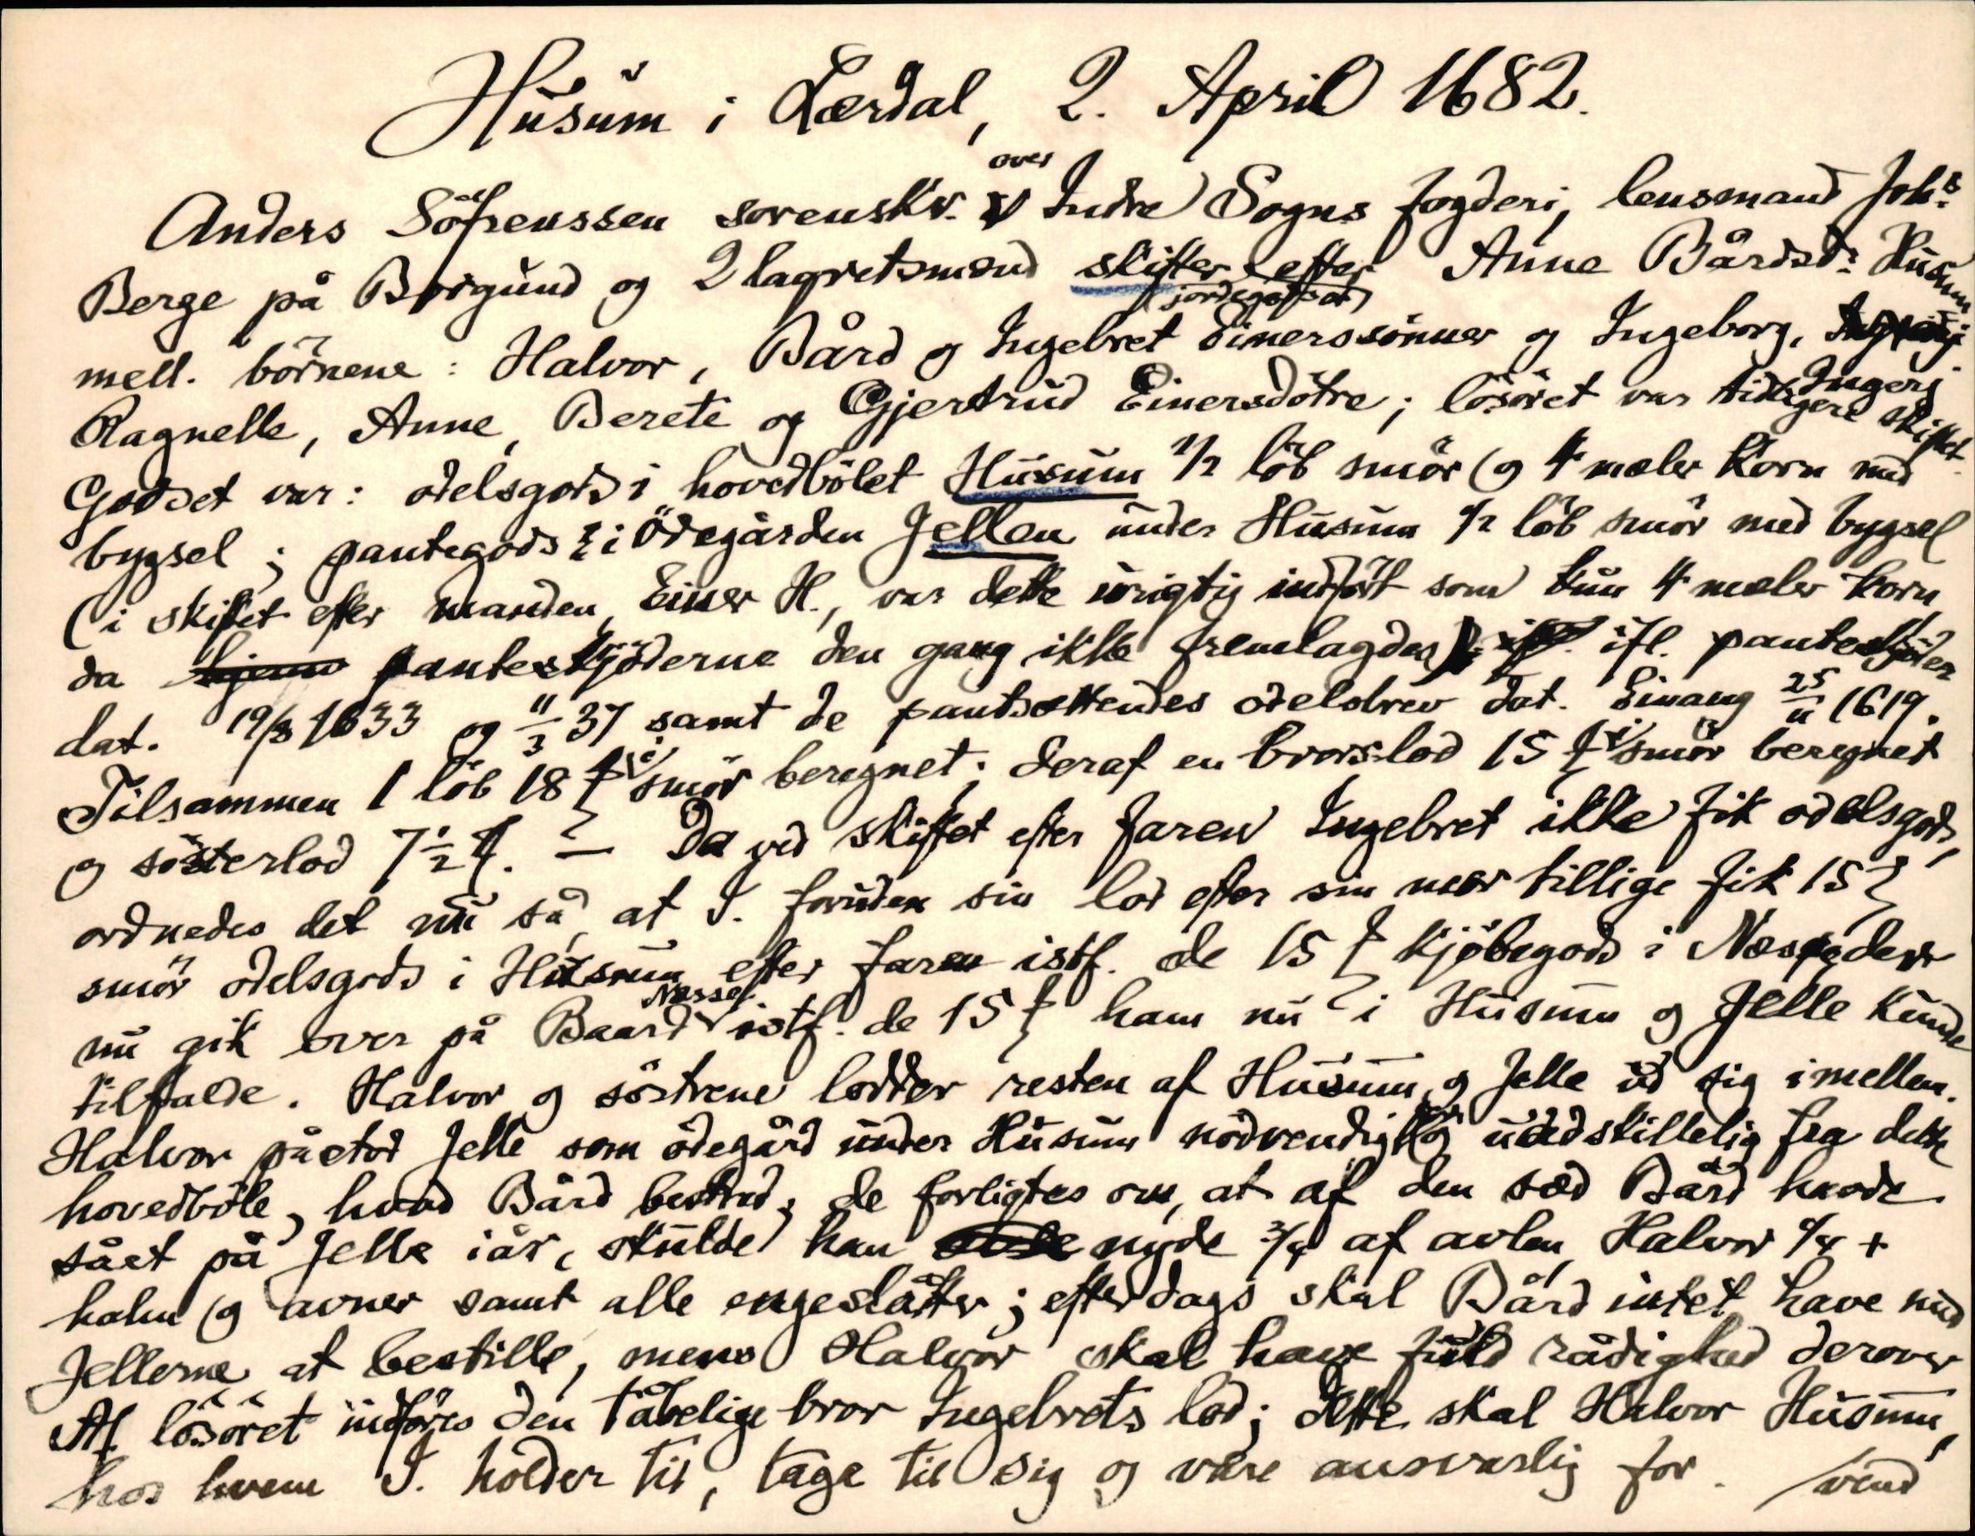 Husum i Lærdal, 2. April 1682.
Anders Söfrenssen sorenskr. over Indre Sogns fogderi, lensmand Johs
Berge på Borgund og 2 lagretsmænd skifter jordegodset efter Anne Bårdsdr Husum
mell. börnene: Halvor, Bård og Ingebret Einerssönner og Ingeborg, Ingeri
Ragnelle, Anne, Berete og Gjertrud Einersdötre; lösöret var tidligere skiftet.
Godset var: odelsgods i hovedbölet Husum 1/2 löb smör og 4 mæler korn med
bygsel; pantegods i ödegården Jellen under Husum 1/2 löb smör med bygsel
(i skiftet efter manden, Einer H., var dette urigtig indfört som kun 4 mæler korn,
da panteskjöderne den gang ikke fremlagdes) ifl. panteskjöder
dat. 19/3 1633 og 11/3 37 samt de pantsættendes odelsbrev dat. Einang 25/11 1619.
Tilsammen 1 löb 18 ℔ i smör beregnet; deraf en brorslod 15 ℔ i smör beregnet
og sösterlod 7 1/2 ℔. — Da ved skiftet efter faren Ingebret ikke fik odelsgods,
ordnedes det nu så, at I. foruden sin lod efter sin mor tillige fik 15 ℔
smör odelsgods i Husum efter faren istf. de 15 ℔ kjöbegods i Næsse der
nu gik over på Baard Næsse istf. de 15 ℔ ham nu i Husum og Jelle kunde
tilfalde. Halvor og söstrene lodder resten af Husum og Jelle ud sig imellem.
Halvor påstod Jelle som ödegård under Husum nödvendig og uadskillelig fra dette
hovedböle, hvad Bård bestred; de forligtes om, at af den sæd Bård havde
sået på Jelle iår, skulde han nyde 3/4 af avlen, Halvor 1/4 +
halm og avner samt alle engeslåtter; efterdags skal Bård intet have med
Jellerne at bestille, mens Halvor skal have fuld rådighed derover
Af lösöret indföres den tåbelige bror Ingebrets lod; dette skal Halvor Husum,
hos hvem I. holder til, tage til sig og være ansvarlig for. /vend